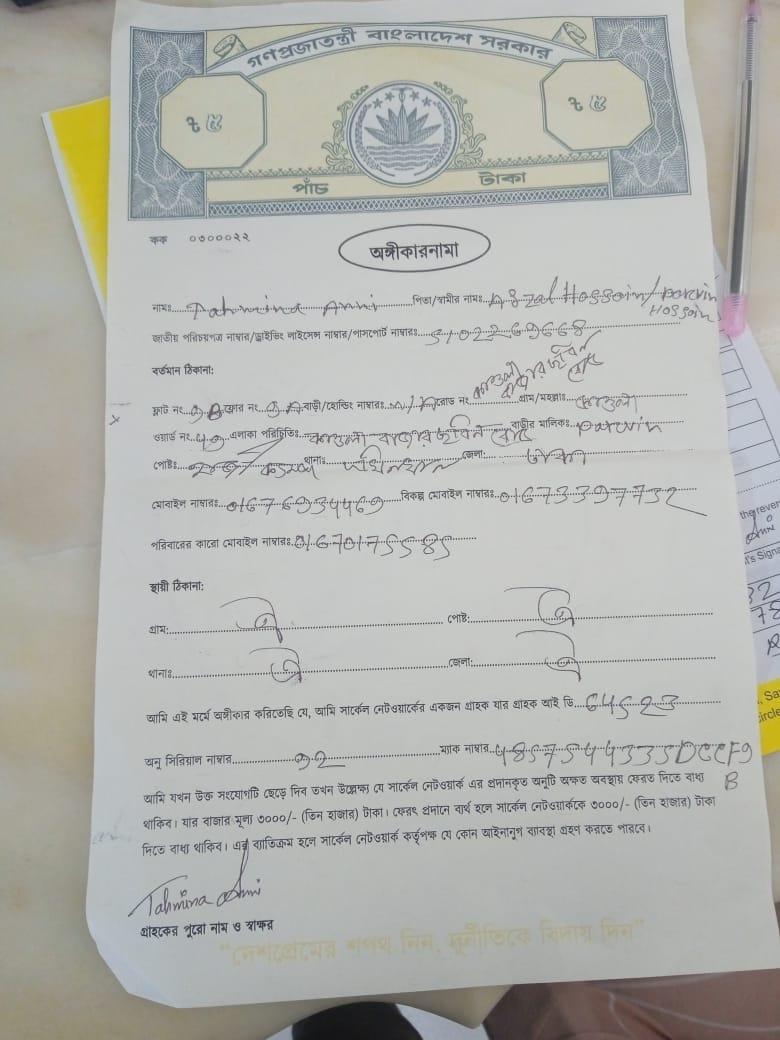 গণপ্রজাতন্ত্রী বাংলাদেশ সরকার
৳ ৫ ৳ ৫
পাঁচ টাকা
কক ০৩০০০২২
অঙ্গীকারনামা
নামঃ Tahmina Anni পিতা/স্বামীর নামঃ Afzal Hossain/parvin Hossain
জাতীয় পরিচয়পত্র নাম্বার/ড্রাইভিং লাইসেন্স নাম্বার/পাসপোর্ট নাম্বারঃ 5102269668
বর্তমান ঠিকানা:
ফ্লাট নং ফ্লোর নং বাড়ী/হোল্ডিং নাম্বারঃ N/A রোড নং গ্রাম/মহল্লাঃ
ওয়ার্ড নং এলাকা পরিচিতিঃ বাড়ীর মালিকঃ parvin
পোষ্টঃ থানাঃ জেলা: ঢাকা
মোবাইল নাম্বারঃ 01676934469 বিকল্প মোবাইল নাম্বারঃ 01673397732
পরিবারের কারো মোবাইল নাম্বারঃ 01670175585
স্থায়ী ঠিকানা:
গ্রাম: ঐ পোষ্ট: ঐ
থানাঃ ঐ জেলা: ঐ
আমি এই মর্মে অঙ্গীকার করিতেছি যে, আমি সার্কেল নেটওয়ার্কের একজন গ্রাহক যার গ্রাহক আই ডি 64523
অনু সিরিয়াল নাম্বার 12 ম্যাক নাম্বার 485754433SDCCF9B
আমি যখন উক্ত সংযোগটি ছেড়ে দিব তখন উল্লেক্ষ্য যে সার্কেল নেটওয়ার্ক এর প্রদানকৃত অনুটি অক্ষত অবস্থায় ফেরত দিতে বাধ্য
থাকিব। যার বাজার মূল্য ৩০০০/- (তিন হাজার) টাকা। ফেরৎ প্রদানে ব্যর্থ হলে সার্কেল নেটওয়ার্ককে ৩০০০/- (তিন হাজার) টাকা
দিতে বাধ্য থাকিব। এর ব্যতিক্রম হলে সার্কেল নেটওয়ার্ক কর্তৃপক্ষ যে কোন আইনানুগ ব্যবস্থা গ্রহণ করতে পারবে।
Tahmina Anni
গ্রাহকের পুরো নাম ও স্বাক্ষর
"দেশপ্রেমের শপথ নিন, দুর্নীতিকে বিদায় দিন"